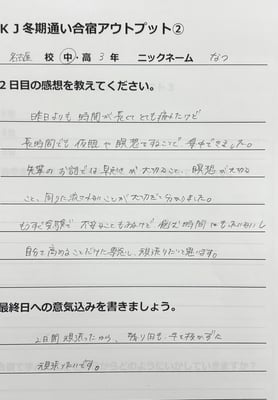 KJ冬期通い合宿アウトプット②
名古屋 校 中・高 3年 ニックネーム なつ
2日目の感想を教えてください。
昨日よりも時間が長くてとても疲れたけど
長時間でも仮眠や瞑想をすることで集中できました。
先輩のお話では早起きが大切なこと、瞑想が大切な
こと、周りに流されないことが大切だと分かりました。
もうすぐ受験で 大変なこともあるけど 時間
自分を高めることだけに 頑張りたいと思います。
最終日への意気込みを書きましょう。
2日間頑張ったから、残り1日も手を抜かずに
頑張りたいです。